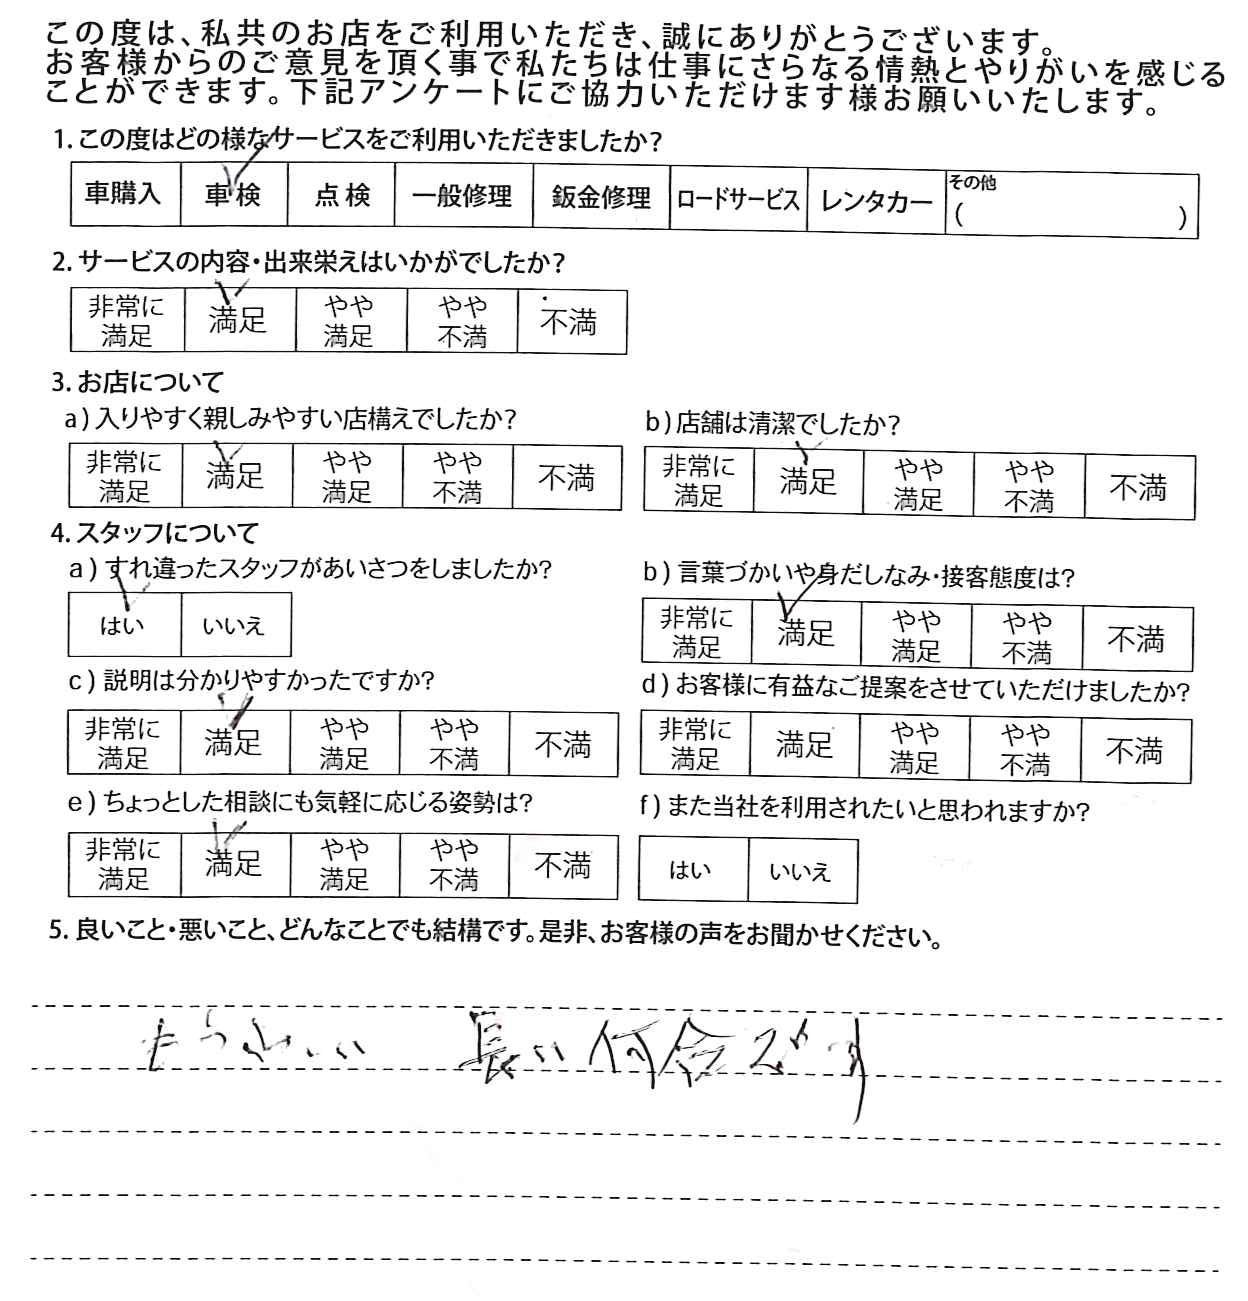 この度は、私共のお店をご利用いただき、誠にありがとうございます。
お客様からのご意見を頂く事で私たちは仕事にさらなる情熱とやりがいを感じる
ことができます。下記アンケートにご協力いただけます様お願いいたします。
1. この度はどの様なサービスをご利用いただきましたか?
車購入 車検 点検 一般修理 鈑金修理 ロードサービス レンタカー その他 ( )
2. サービスの内容・出来栄えはいかがでしたか?
非常に満足 満足 やや満足 やや不満 不満
3. お店について
a) 入りやすく親しみやすい店構えでしたか?
非常に満足 満足 やや満足 やや不満 不満
b) 店舗は清潔でしたか?
非常に満足 満足 やや満足 やや不満 不満
4. スタッフについて
a) すれ違ったスタッフがあいさつをしましたか?
はい いいえ
b) 言葉づかいや身だしなみ・接客態度は?
非常に満足 満足 やや満足 やや不満 不満
c) 説明は分かりやすかったですか?
非常に満足 満足 やや満足 やや不満 不満
d) お客様に有益なご提案をさせていただけましたか?
非常に満足 満足 やや満足 やや不満 不満
e) ちょっとした相談にも気軽に応じる姿勢は?
非常に満足 満足 やや満足 やや不満 不満
f) また当社を利用されたいと思われますか?
はい いいえ
5. 良いこと・悪いこと、どんなことでも結構です。是非、お客様の声をお聞かせください。
長い